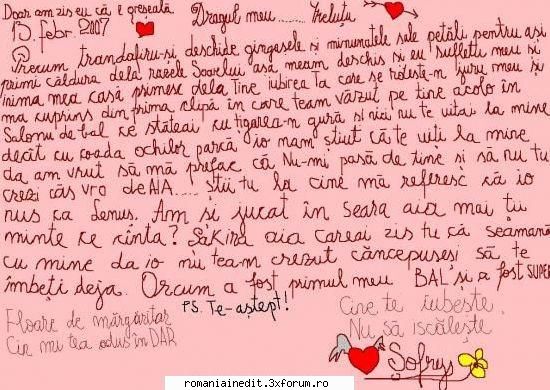 Doar am zis eu că e greșeată
13. febr. 2007
Dragul meu ...... Ineluțu
Precum trandafiru-și deschide gingesele și minunatele sale petăli pentru ași
primi căldura dela razele Soarelui asa meam deschis si eu sufletu meu și
inima mea casă primesc dela Tine iubirea Ta care se rotește-n juru meu și
ma cuprins din prima clipă în care team văzut pe tine acolo în
Salonu de bal ce stăteai cu țigarea-n gură si nici nu te uitai la mine
decât cu coada ochilor parcă io nam știut că te uiti la mine
da am vrut să mă prefac că Nu-mi pasă de tine si să nu tu
crezi căs vro de AIA ...... știi tu la cine mă referesc că io
nus ca Lenus. Am și jucat în seara aia mai tii
minte ce cînta? SĂKIRA aia careai zis tu că seamănă
cu mine da io nu team crezut căncepusesi să te
îmbeți deja. Orcum a fost primul meu BAL si a fost SUPER
P.S. Te-aștept!
Floare de mărgăritar
Cin mi tea adus în DAR
Cine te iubește
Nu să iscălește
Șofrys
romaniainedit.3xforum.ro